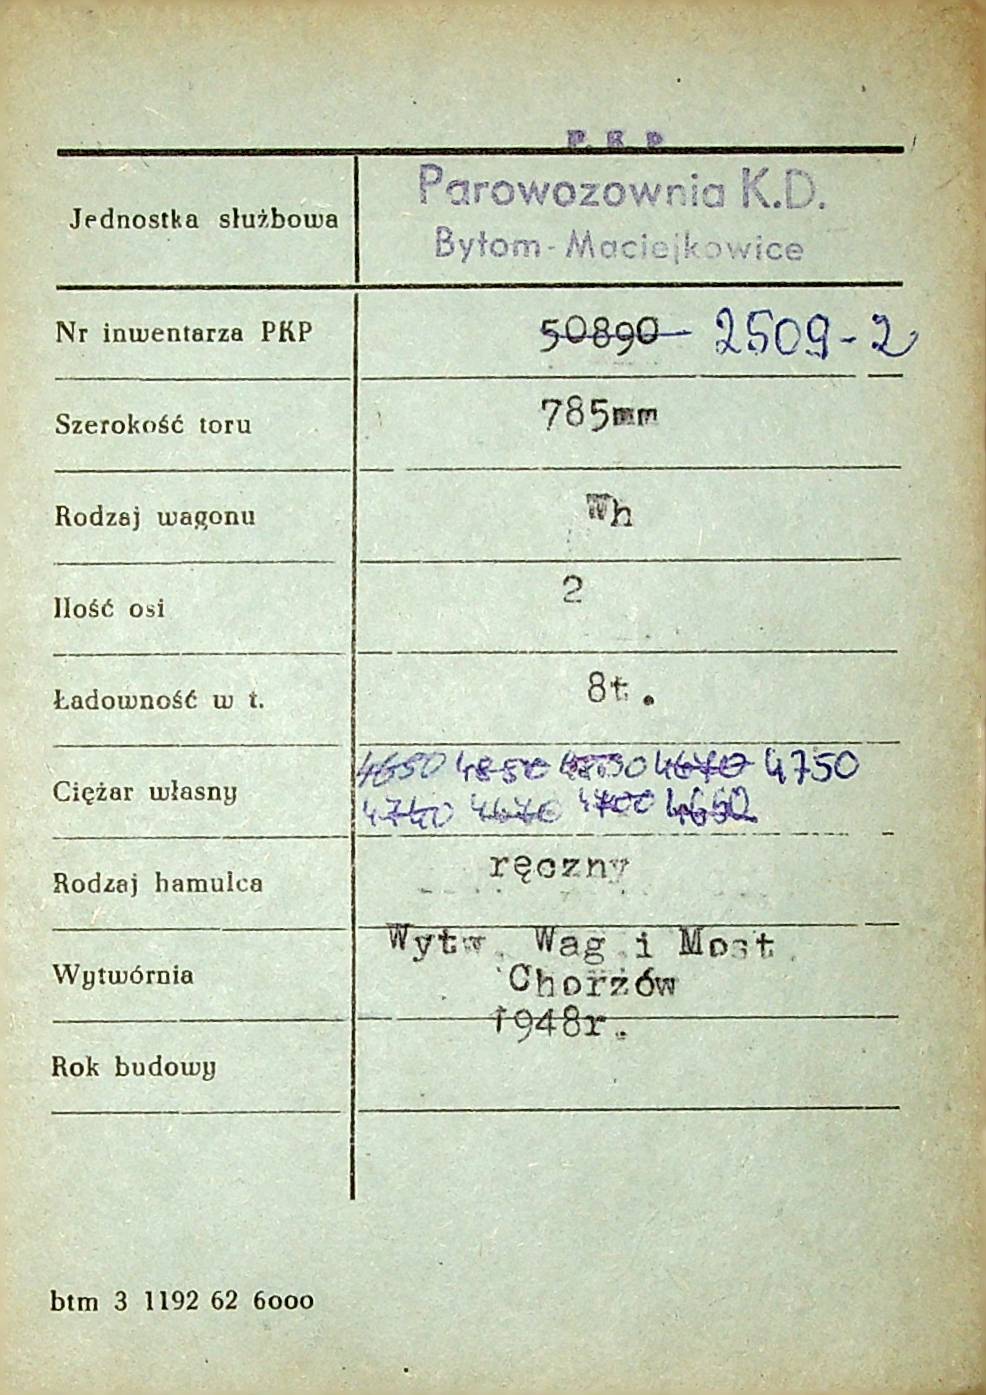 P. K. P
Jednostka służbowa Parowozownia K.D.
Bytom-Maciejkowice
Nr inwentarza PKP 50890 2509-2
Szerokość toru 785mm
Rodzaj wagonu Wh
Ilość osi 2
Ładowność w t. 8t.
Ciężar własny 4650 4850 4670 4750
4740 4670 4700 4660
Rodzaj hamulca ręczny
Wytwórnia Wytw. Wag i Most.
Chorzów
1948r.
Rok budowy
btm 3 1192 62 6000